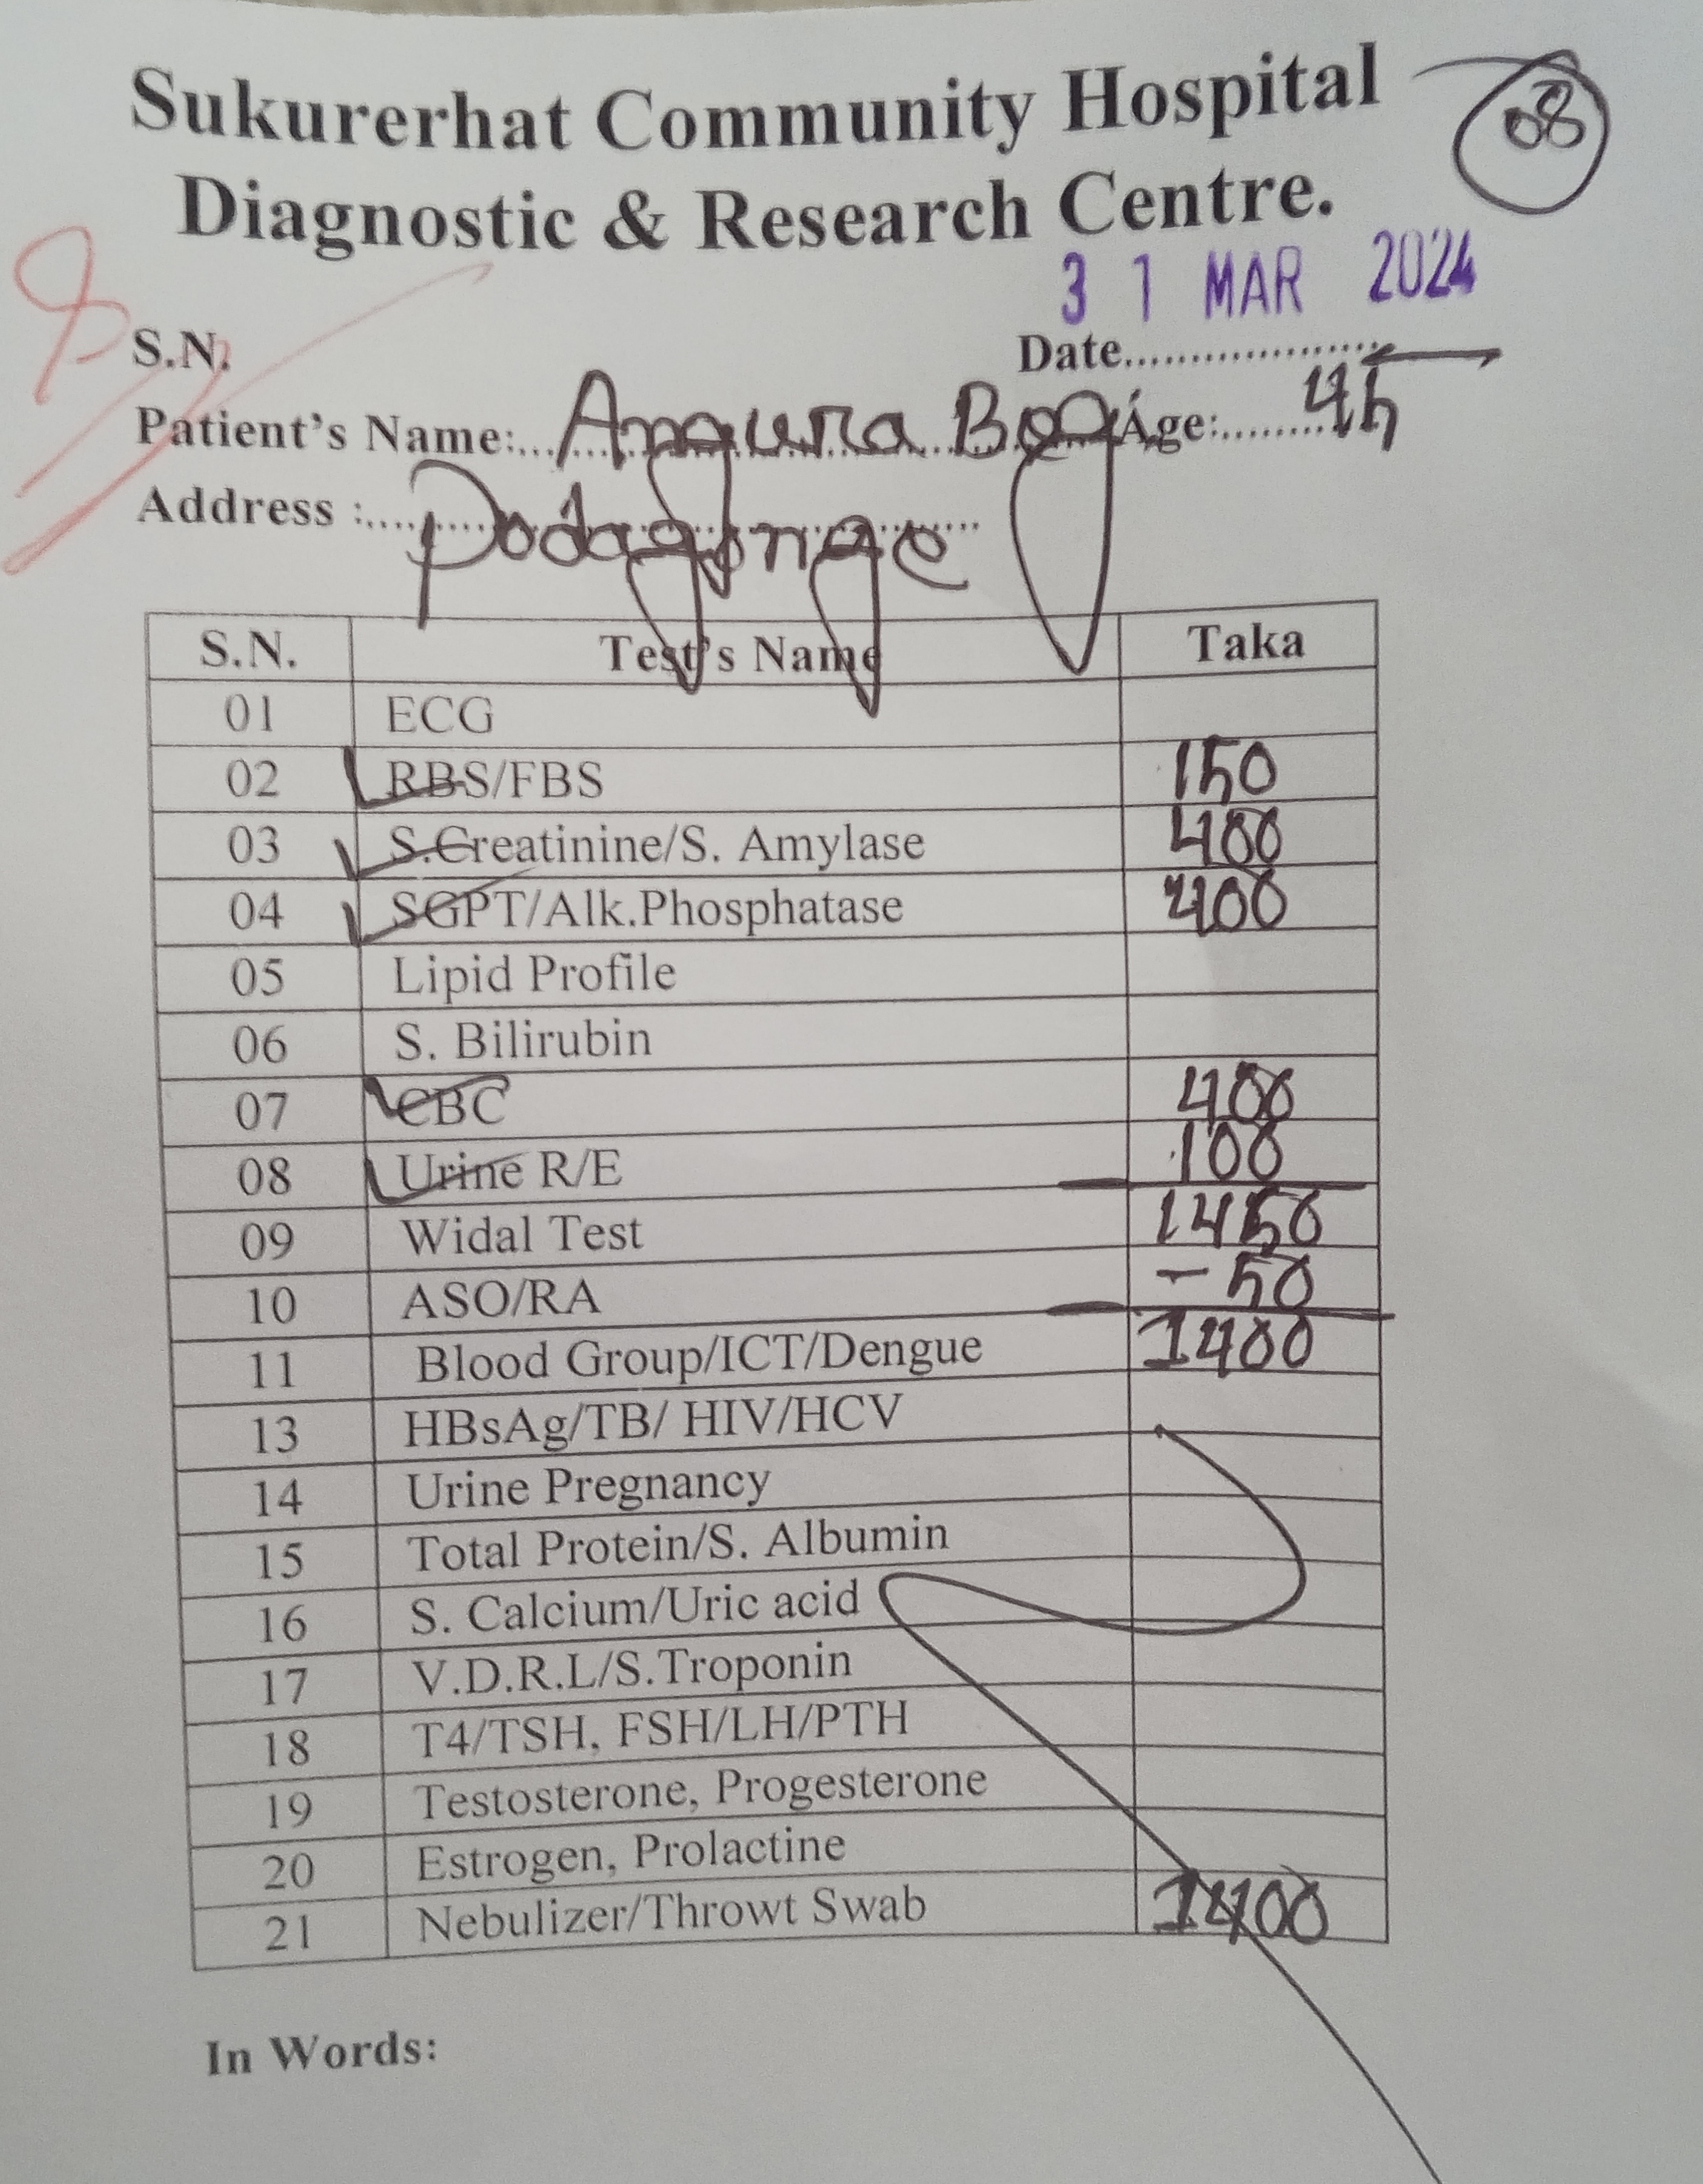 Sukurerhat Community Hospital 08
Diagnostic & Research Centre.
31 MAR 2024
S.N. Date....................
Patient's Name:.. Angura Beg Age:........45
Address :....
S.N. Test's Name Taka
01 ECG
02 RBS/FBS 150
03 S.Creatinine/S. Amylase 400
04 SGPT/Alk.Phosphatase 400
05 Lipid Profile
06 S. Bilirubin
07 CBC 400
08 Urine R/E 100
09 Widal Test 1450
10 ASO/RA - 50
11 Blood Group/ICT/Dengue 1400
13 HBsAg/TB/ HIV/HCV
14 Urine Pregnancy
15 Total Protein/S. Albumin
16 S. Calcium/Uric acid
17 V.D.R.L/S.Troponin
18 T4/TSH, FSH/LH/PTH
19 Testosterone, Progesterone
20 Estrogen, Prolactine
21 Nebulizer/Throwt Swab 1400
In Words: